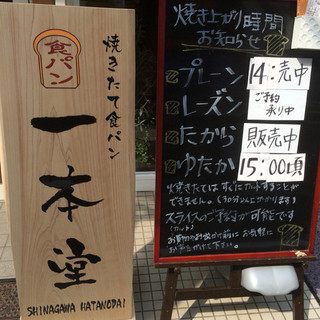 食パン
焼きたて食パン
一本堂
SHINAGAWA HATANODAI
焼き上がり時間
お知らせ
プレーン 14:売中
レーズン ご予約承り中
たから 販売中
ゆたか 15:00頃
火焼きたては すぐにカットすることが
できません。(90分以上かかります)
スライスのご予約が可能です
(カット)